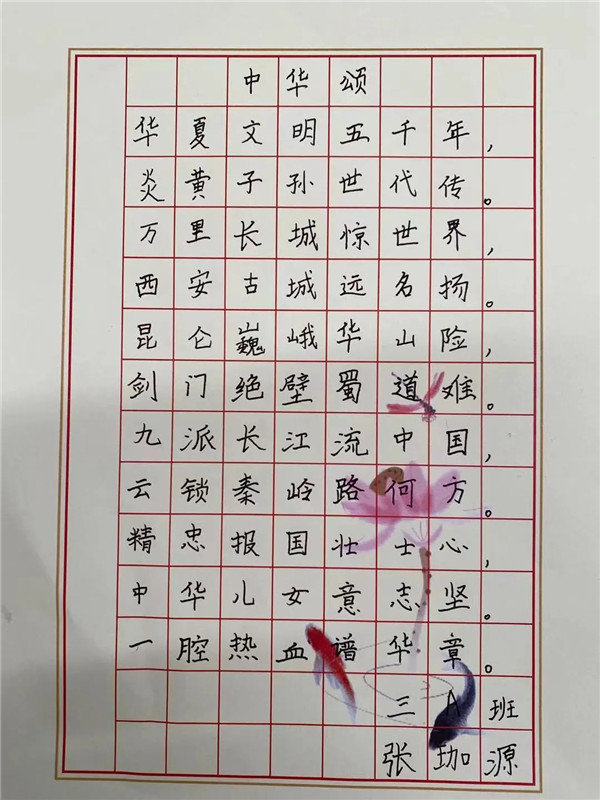 中华颂
华夏文明五千年,
炎黄子孙世代传。
万里长城惊世界,
西安古城远名扬。
昆仑巍峨华山险,
剑门绝壁蜀道难。
九派长江流中国,
云锁秦岭路何方。
精忠报国壮士心,
中华儿女意志坚。
一腔热血谱华章。
三A班
张珈源